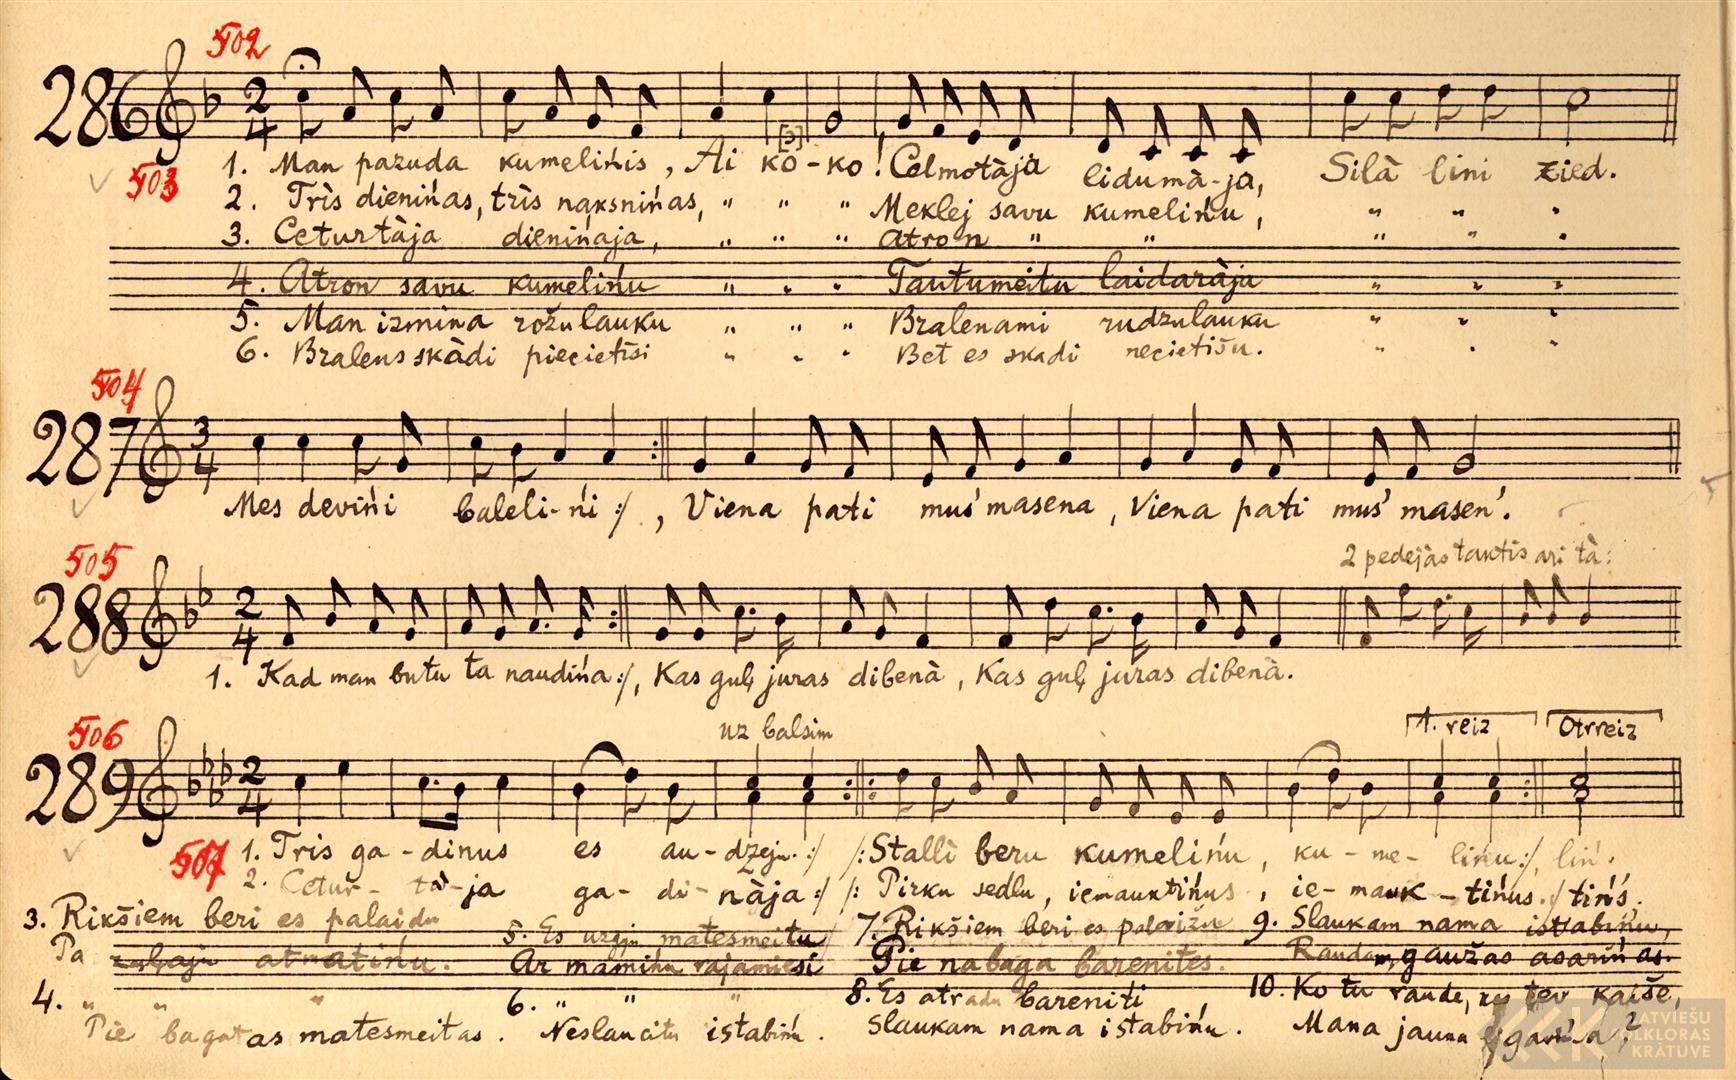 502
286 2 4
[3]
1. Man pazuda kumelińis, Ai ko-ko! Celmotàja lidumà-ja, Silà lini zied.
503
2. Tris dienińas, tris naksnińas, " " " Meklej savu kumelińu, " " "
3. Ceturtàja dienińaja, " " " Atron " " " " "
4. Atron savu kumelińu " " " Tautumeitu laidaràja " " "
5. Man izmina rožulauku " " " Bralenami rudzulauku " " "
6. Bralens skàdi piecietisi " " " Bet es skadi necietišu. " " "
504
287 3 4
Mes devińi baleli-ńi :/, Viena pati mus' masena, Viena pati mus' masen'.
505
2 pedejàs taktis ari tà:
288 2 4
1. Kad man butu ta naudińa :/, Kas guļ juras dibenà, Kas guļ juras dibenà.
506
uz balsim 1. reiz Otrreiz
289 2 4
507
1. Tris ga-dinus es au-dzeju :/ /: Stallì beru kumelińu, ku-me-lińu :/, liń.
2. Cetur-tà-ja ga-di-nàja :/ /: Pirku sedlu, iemauktińus, ie-mauk-tińus :/ tińs.
3. Rikšiem beri es palaidu
Pa atmatińu.
4. " " "
Pie bagatas matesmeitas.
5. Es uzgju matesmeitu
Ar mamińu
6. " " "
Neslaucitu istabińu.
7. Rikšiem beri es
Pie nabaga barenites.
8. Es atradu bareniti
Slaukam nama istabińu.
9. Slaukam nama istabińu,
Raudam, gaužas asarińas.
10. Ko tu raude, tev kaiše,
Mana jauna
LATVIEŠU
FOLKLORAS
KRĀTUVE